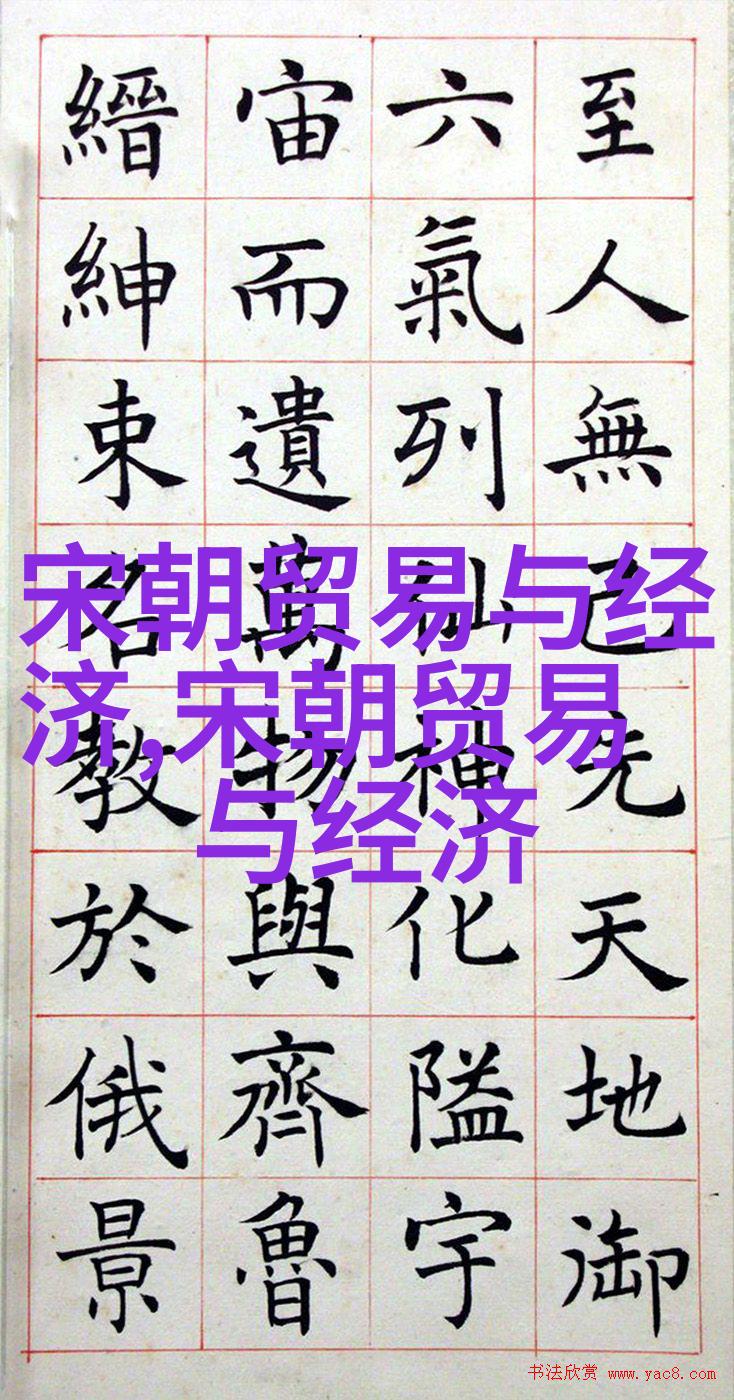 至人無己先天地御
六氣列仙神化隘宇
宙而遺萬物與齊魯
縉紳束名教於俄景
宋朝贸易与经
济,宋朝贸易
与经济
书法欣赏 www.yac8.com